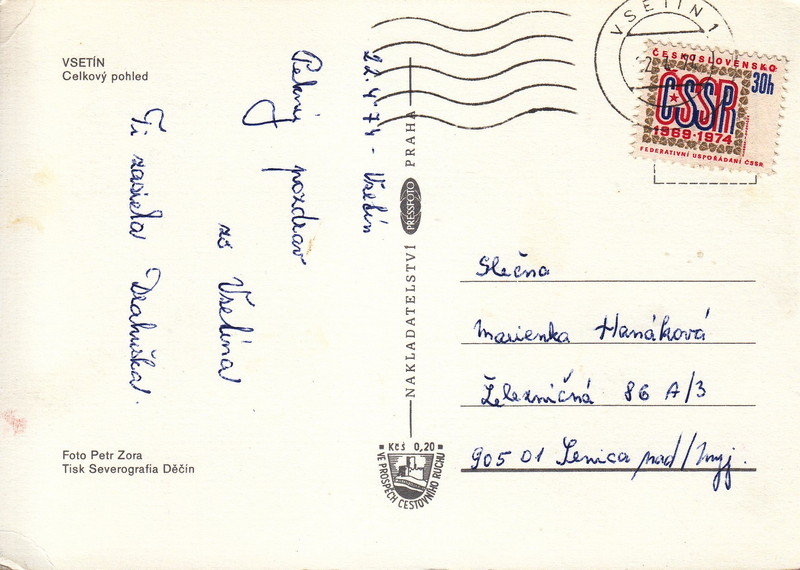 VSETÍN
Celkový pohled
22. 4. 74 - Vsetín
Pekný pozdrav
zo Vsetína
Ti zasiela Drahuška.
Foto Petr Zora
Tisk Severografia Děčín
NAKLADATELSTVÍ PRESSFOTO PRAHA
Kčs 0,20
VE PROSPĚCH CESTOVNÍHO RUCHU
VSETÍN 1
ČESKOSLOVENSKO
30h
ČSSR
1969·1974
FEDERATIVNÍ USPOŘÁDÁNÍ ČSSR
Slečna
Marienka Hanáková
Železničná 86 A/3
905 01 Senica nad/Myj.